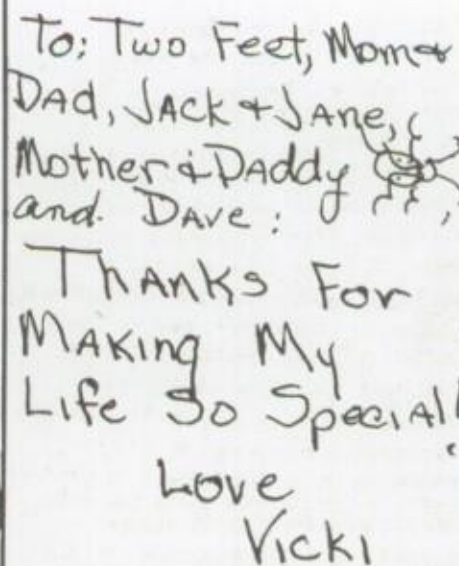 To: Two Feet, Mom &
Dad, Jack & Jane,
Mother & Daddy
and Dave:
Thanks For
Making My
Life So Special!
Love
Vicki